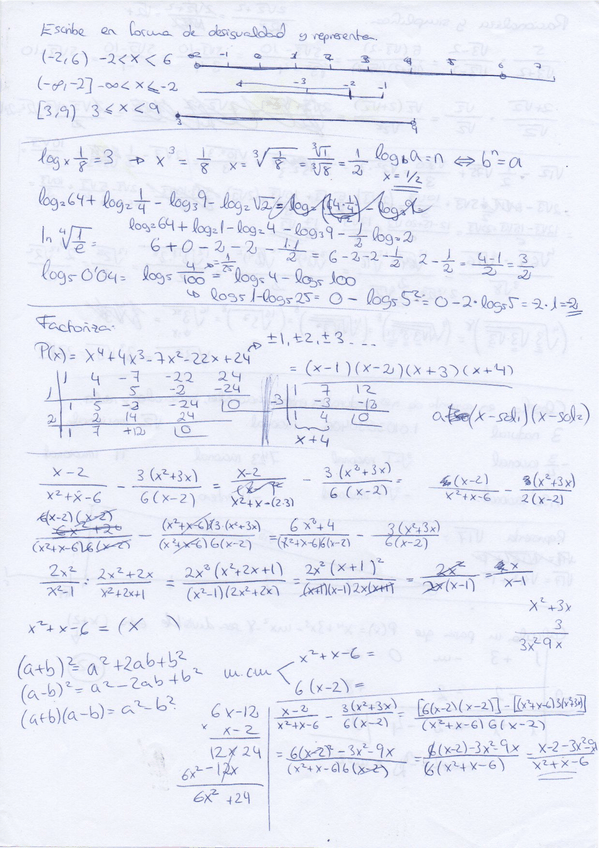 Escribe en forma de desigualdad y representa.
(-2,6) -2<x<6
-2 -1 0 1 2 3 4 5 6 7
(-∞,-2] -∞<x≤-2
-3 -2 -1
[3,9) 3≤x<9
3 9
log x 1/8 = 3 → x³ = 1/8 x = ∛(1/8) = ∛1/∛8 = 1/2 log b a = n ⇔ bⁿ = a
x = 1/2
log₂64 + log₂ 1/4 - log₃9 - log₂√2
ln ⁴√(1/e) = log₂64 + log₂1 - log₂4 - log₃9 - 1/2 log₂2
6 + 0 - 2 - 2 - 1/2·1 6-2-2-1/2 2 - 1/2 = 4-1/2 = 3/2
log₅ 0'04 = log₅ 4/100 = 1/25 log₅4 - log₅100
↳ log₅1 - log₅25 = 0 - log₅5² = 0 - 2·log₅5 = -2·1 = -2
Factoriza:
P(x) = x⁴+4x³-7x²-22x+24 → ±1, ±2, ±3 ...
= (x-1)(x-2)(x+3)(x+4)
1 4 -7 -22 24
1 1 5 -2 -24
1 5 -2 -24 0
2 2 14 24
1 7 +12 0
1 7 12
-3 -3 -12
1 4 0
x+4
a (x-sol1)(x-sol2)
x-2/x²+x-6 - 3(x²+3x)/6(x-2) = x-2/x²+x-(2·3) - 3(x²+3x)/6(x-2) = 6(x-2)/x²+x-6 - 3(x²+3x)/2(x-2)
6(x-2)(x-2)/(x²+x-6)6(x-2) - (x²+x-6)3(x²+3x)/(x²+x-6)6(x-2) = 6x²+4/(x²+x-6)6(x-2) - 3(x²+3x)/6(x-2)
2x²/x²-1 : 2x²+2x/x²+2x+1 = 2x²(x²+2x+1)/(x²-1)(2x²+2x) = 2x²(x+1)²/(x+1)(x-1)2x(x+1) = 2x²/2x(x-1) = x/x-1
x²+3x
3
3x² 9x
x²+x-6 = (x /
(a+b)² = a²+2ab+b²
(a-b)² = a²-2ab+b²
(a+b)(a-b) = a²-b²
m.c.m
x²+x-6 =
6(x-2) =
6x-12
x x-2
12x 24
6x²-12x
6x² +24
x-2/x²+x-6 - 3(x²+3x)/6(x-2) = [6(x-2)(x-2)] - [(x²+x-6)3(x²+3x)]/(x²+x-6)6(x-2)
= 6(x-2)² - 3x²-9x/(x²+x-6)6(x-2) = 6(x-2)-3x²-9x/6(x²+x-6) = x-2-3x²-9/x²+x-6